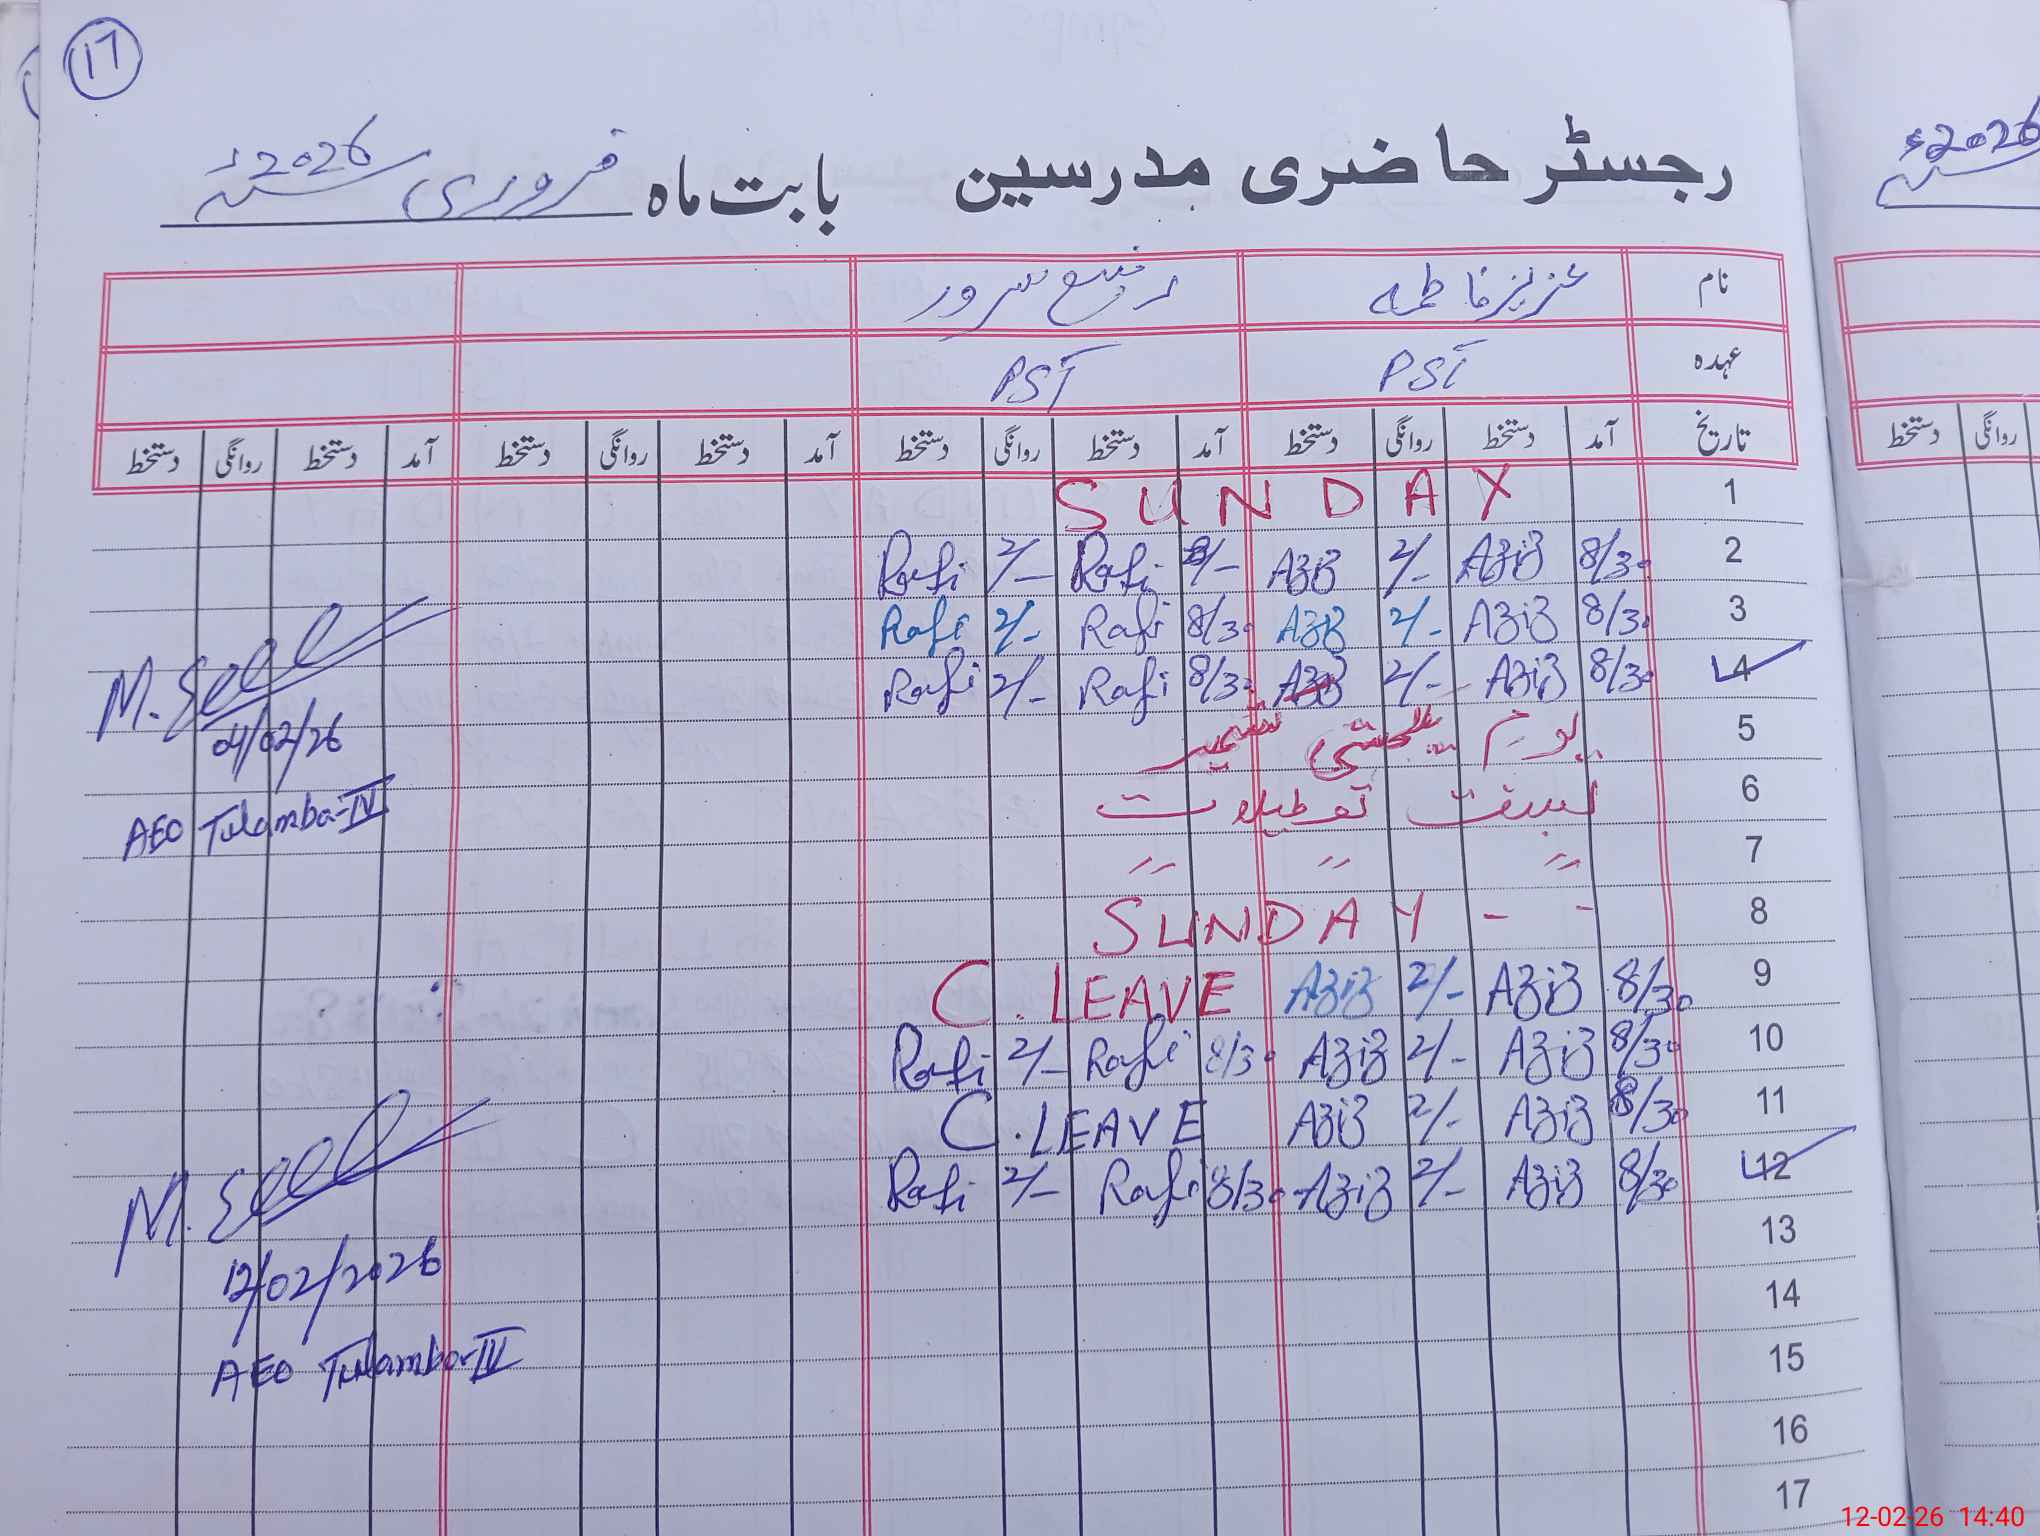 17
رجسٹر حاضری مدرسین بابت ماہ فروری 2026ء
2026ء
نام عزیز فاطمہ رفیع سرور
عہدہ PST PST
تاریخ آمد دستخط روانگی دستخط آمد دستخط روانگی دستخط آمد دستخط روانگی دستخط آمد دستخط روانگی دستخط
روانگی دستخط
SUNDAY 1
Rafi 2/- Rafi 8/- Aziz 2/- Aziz 8/30 2
Rafi 2/- Rafi 8/30 Aziz 2/- Aziz 8/30 3
Rafi 2/- Rafi 8/30 Aziz 2/- Aziz 8/30 4
04/02/26
AEO Tulamba-IV
یوم یکجہتی کشمیر 5
بسنت تعطیلات 6
〃 〃 〃 7
SUNDAY - - 8
C. LEAVE Aziz 2/- Aziz 8/30 9
Rafi 2/- Rafi 8/30 Aziz 2/- Aziz 8/30 10
C. LEAVE Aziz 2/- Aziz 8/30 11
Rafi 2/- Rafi 8/30 Aziz 2/- Aziz 8/30 12
12/02/2026
AEO Tulamba-IV
13
14
15
16
17
12-02-26 14:40